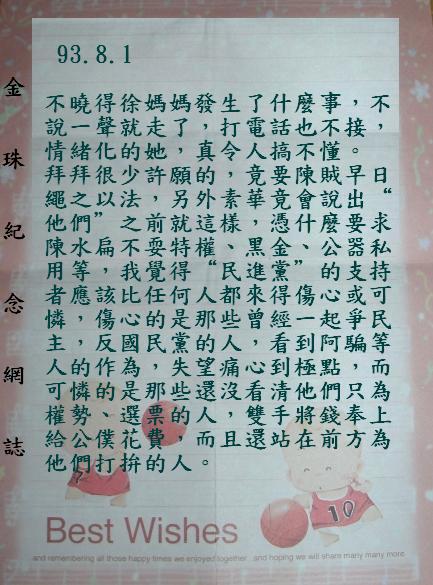 93.8.1
金珠紀念網誌
不曉得徐媽媽發生了什麼事，不
說一聲就走了，打電話也不接，
情緒化的她，真的令人搞不懂。
拜拜很少許願，竟要陳賊早日
繩之以法，另外素華會說出“
他們”之前就這樣、憑什麼要求
陳水扁不耍特權、黑金、公器私
用等，我覺得“民進黨”的支持
者應該比任何人都來得傷心或可
憐，傷心的是那些曾經一起爭民
主、反國民黨的人，看到阿騙等
人的作為，失望痛心到極點，而
可憐的是那些還沒看清他們只為
權勢、選票的人，雙手將錢奉上
給公僕花費，而且還站在前方為
他們打拚的人。
10
Best Wishes
and remembering all those happy times we enjoyed together...and hoping we will share many many more